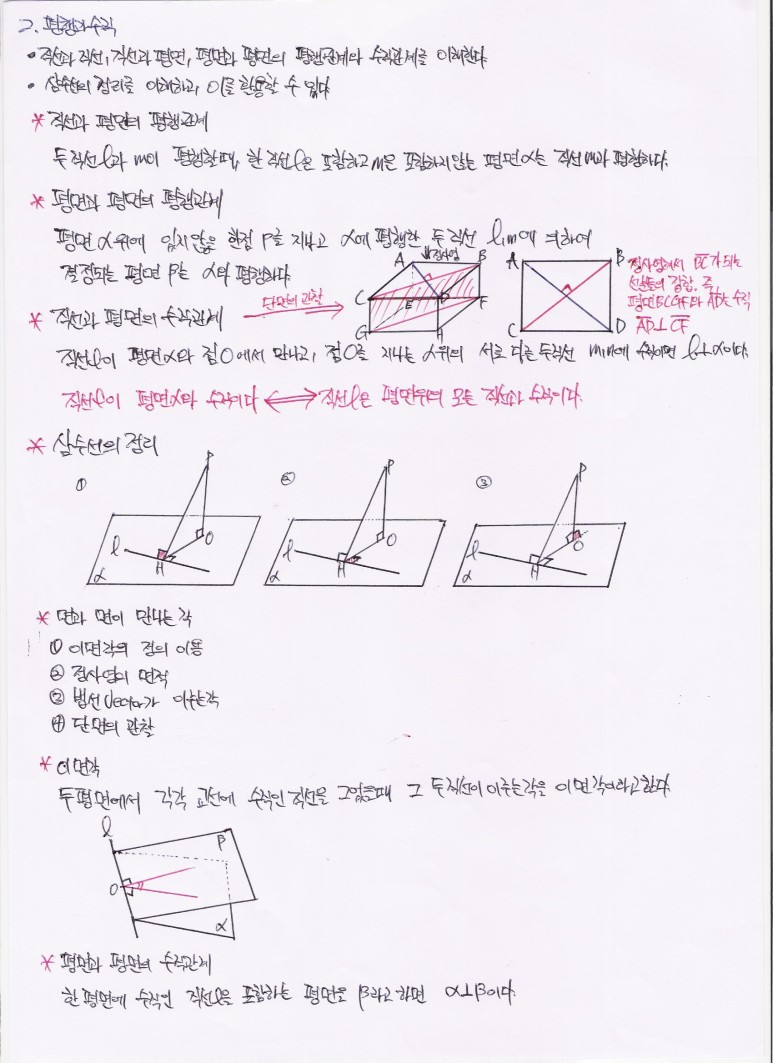 2. 평행과 수직
• 직선과 직선, 직선과 평면, 평면과 평면의 평행관계와 수직관계를 이해한다.
• 삼수선의 정리를 이해하고, 이를 활용할 수 있다
* 직선과 평면의 평행관계
두 직선 l과 m이 평행할 때, 한 직선 l은 포함하고 m은 포함하지 않는 평면 α는 직선 m과 평행하다.
* 평면과 평면의 평행관계
평면 α 위에 있지 않은 한점 P를 지나고 α에 평행한 두 직선 l, m에 의하여
결정되는 평면 β는 α와 평행하다.
* 직선과 평면의 수직관계
단면의 관찰
↓정사영
A B C D E F G H
A B C D
정사영에서 BC가 되는
선분들의 집합. 즉,
평면 BCGF와 AD는 수직
A͞D͞⊥C͞F͞
직선 l이 평면 α와 점 O에서 만나고, 점 O를 지나는 α위의 서로 다른 두 직선 m, n에 수직이면 l⊥α이다.
직선 l이 평면 α와 수직이다 ⟷ 직선 l은 평면위의 모든 직선과 수직이다.
* 삼수선의 정리
① P O H l α
② P O H l α
③ P O H l α
* 면과 면이 만나는 각
① 이면각의 정의 이용
② 정사영의 면적
③ 법선 Vector가 이루는 각
④ 단면의 관찰
* 이면각
두 평면에서 각각 교선에 수직인 직선을 그었을 때 그 두 직선이 이루는 각을 이면각이라고 한다.
l β O α
* 평면과 평면의 수직관계
한 평면에 수직인 직선 l을 포함하는 평면을 β라고 하면 α⊥β이다.